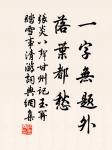 一字無題外
落葉都愁
張炎八聲甘州記玉關
踏雪事清游詞典網集